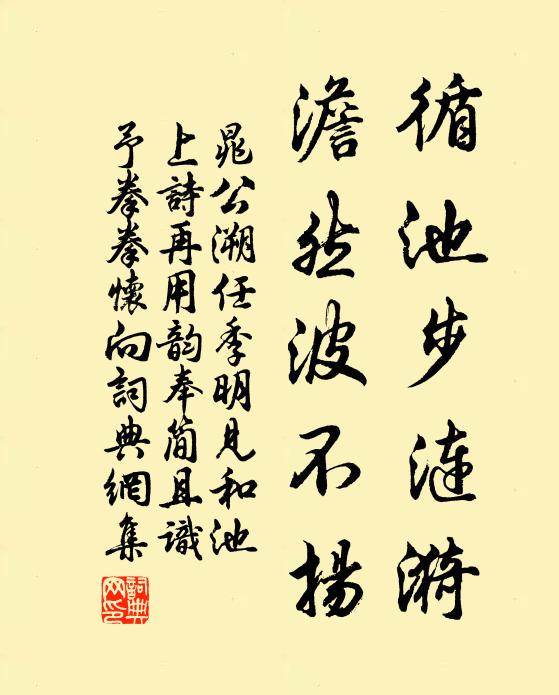 循池步涟漪
澹然波不揚
晁公溯任季明見和池
上詩再用韵奉简且識
予拳拳懷向詞典網集
詞典